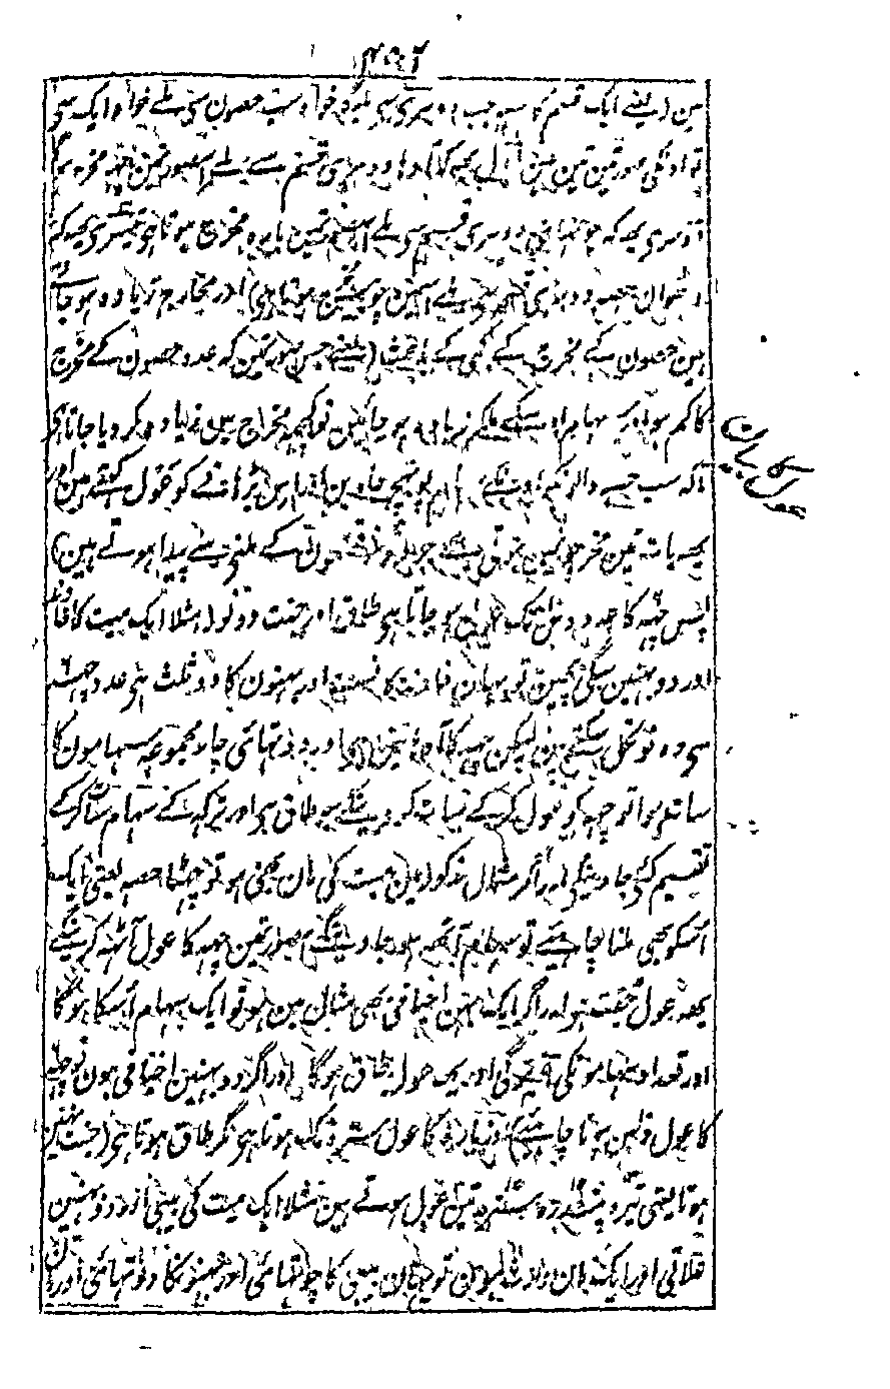 مین (یعنے ایک قسم کا سب جب) دوسری سی ملے خواہ سب حصون سی ملے خواہ ایک سی
تو اونکی صورتین تین ہین اول یہ کہ آدھا دوسری قسم سے ملے اسصورتمین چھہ مخرج ہوگا
دوسری یہ کہ چوتھائی دوسری قسم سی ملے اسمین بارہ مخرج ہوتا ہی تیسری یہ کہ
آٹھوان حصہ دوسری قسم سی ملے اسمین چوبیس ہوتا ہی) اور مخارج زیادہ ہو جاتے
ہین حصون کے مخرج سے کمی کے باعث (یعنے جس صورتمین کہ عدد حصون کے مخرج
کا کم ہو اور سہام اوسکے ملکر زیادہ ہو جائین تو کچھہ مخرج مین زیادہ کر دیا جاتا ہی
تاکہ سب حصے والونکو اونکے سہام پہنچ جاوین اور اس بڑھانے کو عول کہتے ہین اور
یہہ بات تین مخرجونمین ہوتی ہے جو دو قسمون کے ملنے سے پیدا ہوتے ہین)
پس چھہ کا عدد دس تک عول ہو جاتا ہی طاق اور جفت دونو (مثلا ایک میت کا خاوند
اور دو بہنین سگی ہین تو یہان خاوند کا نصف اور بہنون کا دو ثلث ہی عدد چھہ
سی وہ تو نکل سکتے ہین لیکن چھہ کا آدھا تین ہی اور دو تہائی چار مجموعہ سہامون کا
سات ہوا تو چھہ کو عول کرکے سات کر دینگے یہ طاق ہی اور ترکہ کے سہام سات کرکے
تقسیم کئی جاوینگی اور اگر مثال مذکور مین میت کی مان بھی ہو تو چھٹا حصہ یعنی ایک
اسکو بھی ملنا چاہئیے تو سہام آٹھہ ہو جاوینگے اسصورتمین چھہ کا عول آٹھہ کرینگے
یہہ عول جفت ہی اور اگر ایک بہن اخیافی بھی مثال مین ہو تو ایک سہام اسکا ہوگا
اور تعداد سہامونکی ۹ ہوگی اور یہہ عول طاق ہوگا اور اگر دو بہنین اخیافی ہون تو چھہ
کا عول دس ہونا چاہئیے) اور بارہ کا عول سترہ تک ہوتا ہی مگر طاق ہوتا ہی (جفت نہین
ہوتا یعنی تیرہ پندرہ سترہ تین عول ہوتے ہین مثلا ایک میت کی بیبی اور دو بہنین
علاتی اور ایک مان وارث ہون تو یہان بیبی کا چوتھائی اور بہنونکا دو تہائی اور مان
عول کا بیان